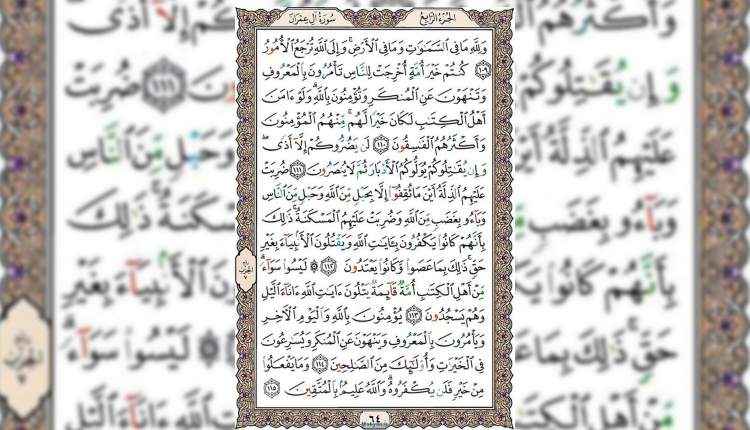 سُورَةُ آلِ عِمْرَانَ
الجُزْءُ الرَّابِعُ
وَلِلَّهِ مَا فِي السَّمَٰوَٰتِ وَمَا فِي الْأَرْضِ ۚ وَإِلَى اللَّهِ تُرْجَعُ الْأُمُورُ
﴿١٠٩﴾ كُنتُمْ خَيْرَ أُمَّةٍ أُخْرِجَتْ لِلنَّاسِ تَأْمُرُونَ بِالْمَعْرُوفِ
وَتَنْهَوْنَ عَنِ الْمُنكَرِ وَتُؤْمِنُونَ بِاللَّهِ ۗ وَلَوْ ءَامَنَ
أَهْلُ الْكِتَٰبِ لَكَانَ خَيْرًا لَّهُم ۚ مِّنْهُمُ الْمُؤْمِنُونَ
وَأَكْثَرُهُمُ الْفَٰسِقُونَ ﴿١١٠﴾ لَن يَضُرُّوكُمْ إِلَّا أَذًى ۖ
وَإِن يُقَٰتِلُوكُمْ يُوَلُّوكُمُ الْأَدْبَارَ ثُمَّ لَا يُنصَرُونَ ﴿١١١﴾ ضُرِبَتْ
عَلَيْهِمُ الذِّلَّةُ أَيْنَ مَا ثُقِفُوا إِلَّا بِحَبْلٍ مِّنَ اللَّهِ وَحَبْلٍ مِّنَ النَّاسِ
وَبَاءُو بِغَضَبٍ مِّنَ اللَّهِ وَضُرِبَتْ عَلَيْهِمُ الْمَسْكَنَةُ ۚ ذَٰلِكَ
بِأَنَّهُمْ كَانُوا يَكْفُرُونَ بِـَٔايَٰتِ اللَّهِ وَيَقْتُلُونَ الْأَنبِيَاءَ بِغَيْرِ
حَقٍّ ۚ ذَٰلِكَ بِمَا عَصَوا وَّكَانُوا يَعْتَدُونَ ﴿١١٢﴾ ۞ لَيْسُوا سَوَاءً ۗ
مِّنْ أَهْلِ الْكِتَٰبِ أُمَّةٌ قَائِمَةٌ يَتْلُونَ ءَايَٰتِ اللَّهِ ءَانَاءَ الَّيْلِ
وَهُمْ يَسْجُدُونَ ﴿١١٣﴾ يُؤْمِنُونَ بِاللَّهِ وَالْيَوْمِ الْآخِرِ
وَيَأْمُرُونَ بِالْمَعْرُوفِ وَيَنْهَوْنَ عَنِ الْمُنكَرِ وَيُسَٰرِعُونَ
فِي الْخَيْرَٰتِ وَأُولَٰئِكَ مِنَ الصَّٰلِحِينَ ﴿١١٤﴾ وَمَا يَفْعَلُوا
مِنْ خَيْرٍ فَلَن يُكْفَرُوهُ ۗ وَاللَّهُ عَلِيمٌ بِالْمُتَّقِينَ ﴿١١٥﴾
٦٤